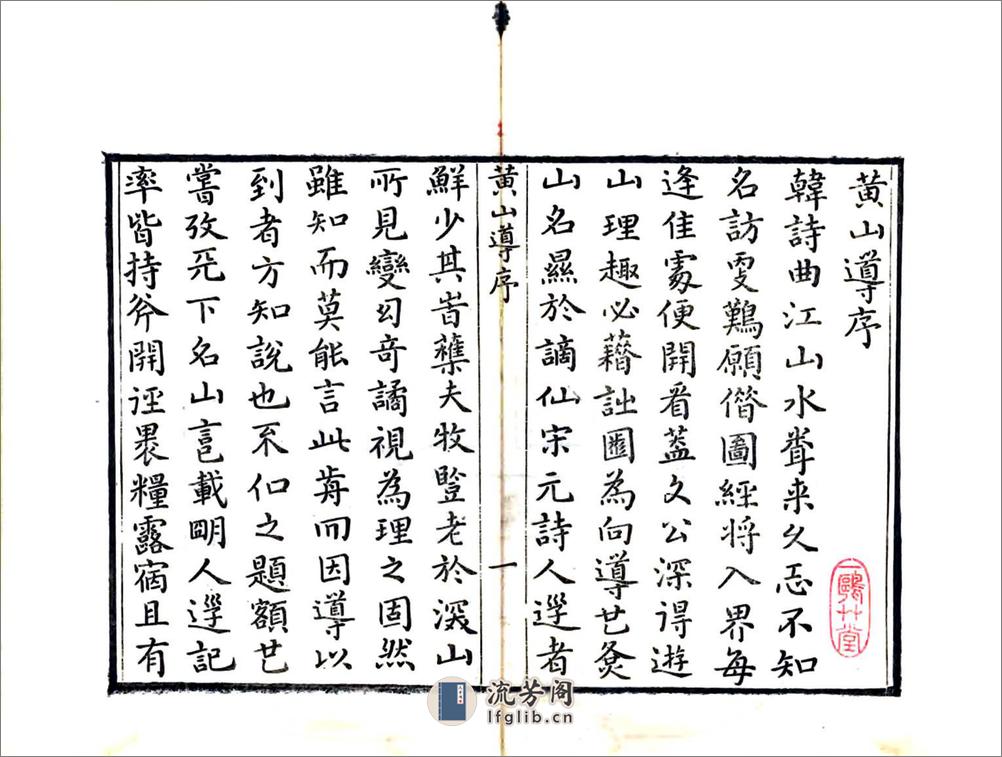 黄山導序
韓詩曲江山水䎽来久𢖶不知
名訪難願偕圖經将入界每
逢佳處便開看葢文公深得遊
山理趣必藉圖為向導也
山名㬎於謫仙宋元詩人遊者
黄山導序
一
鮮少其旹樵夫牧豎老於深山
所見變幻竒譎視為理之固然
雖知而莫能言此歬而因導以
到者方知說也不佀之題額也
嘗攷兲下名山載朙人遊記
率皆持斧開裹糧露宿且有
一鷗艸堂
流芳阁
lfglib.cn